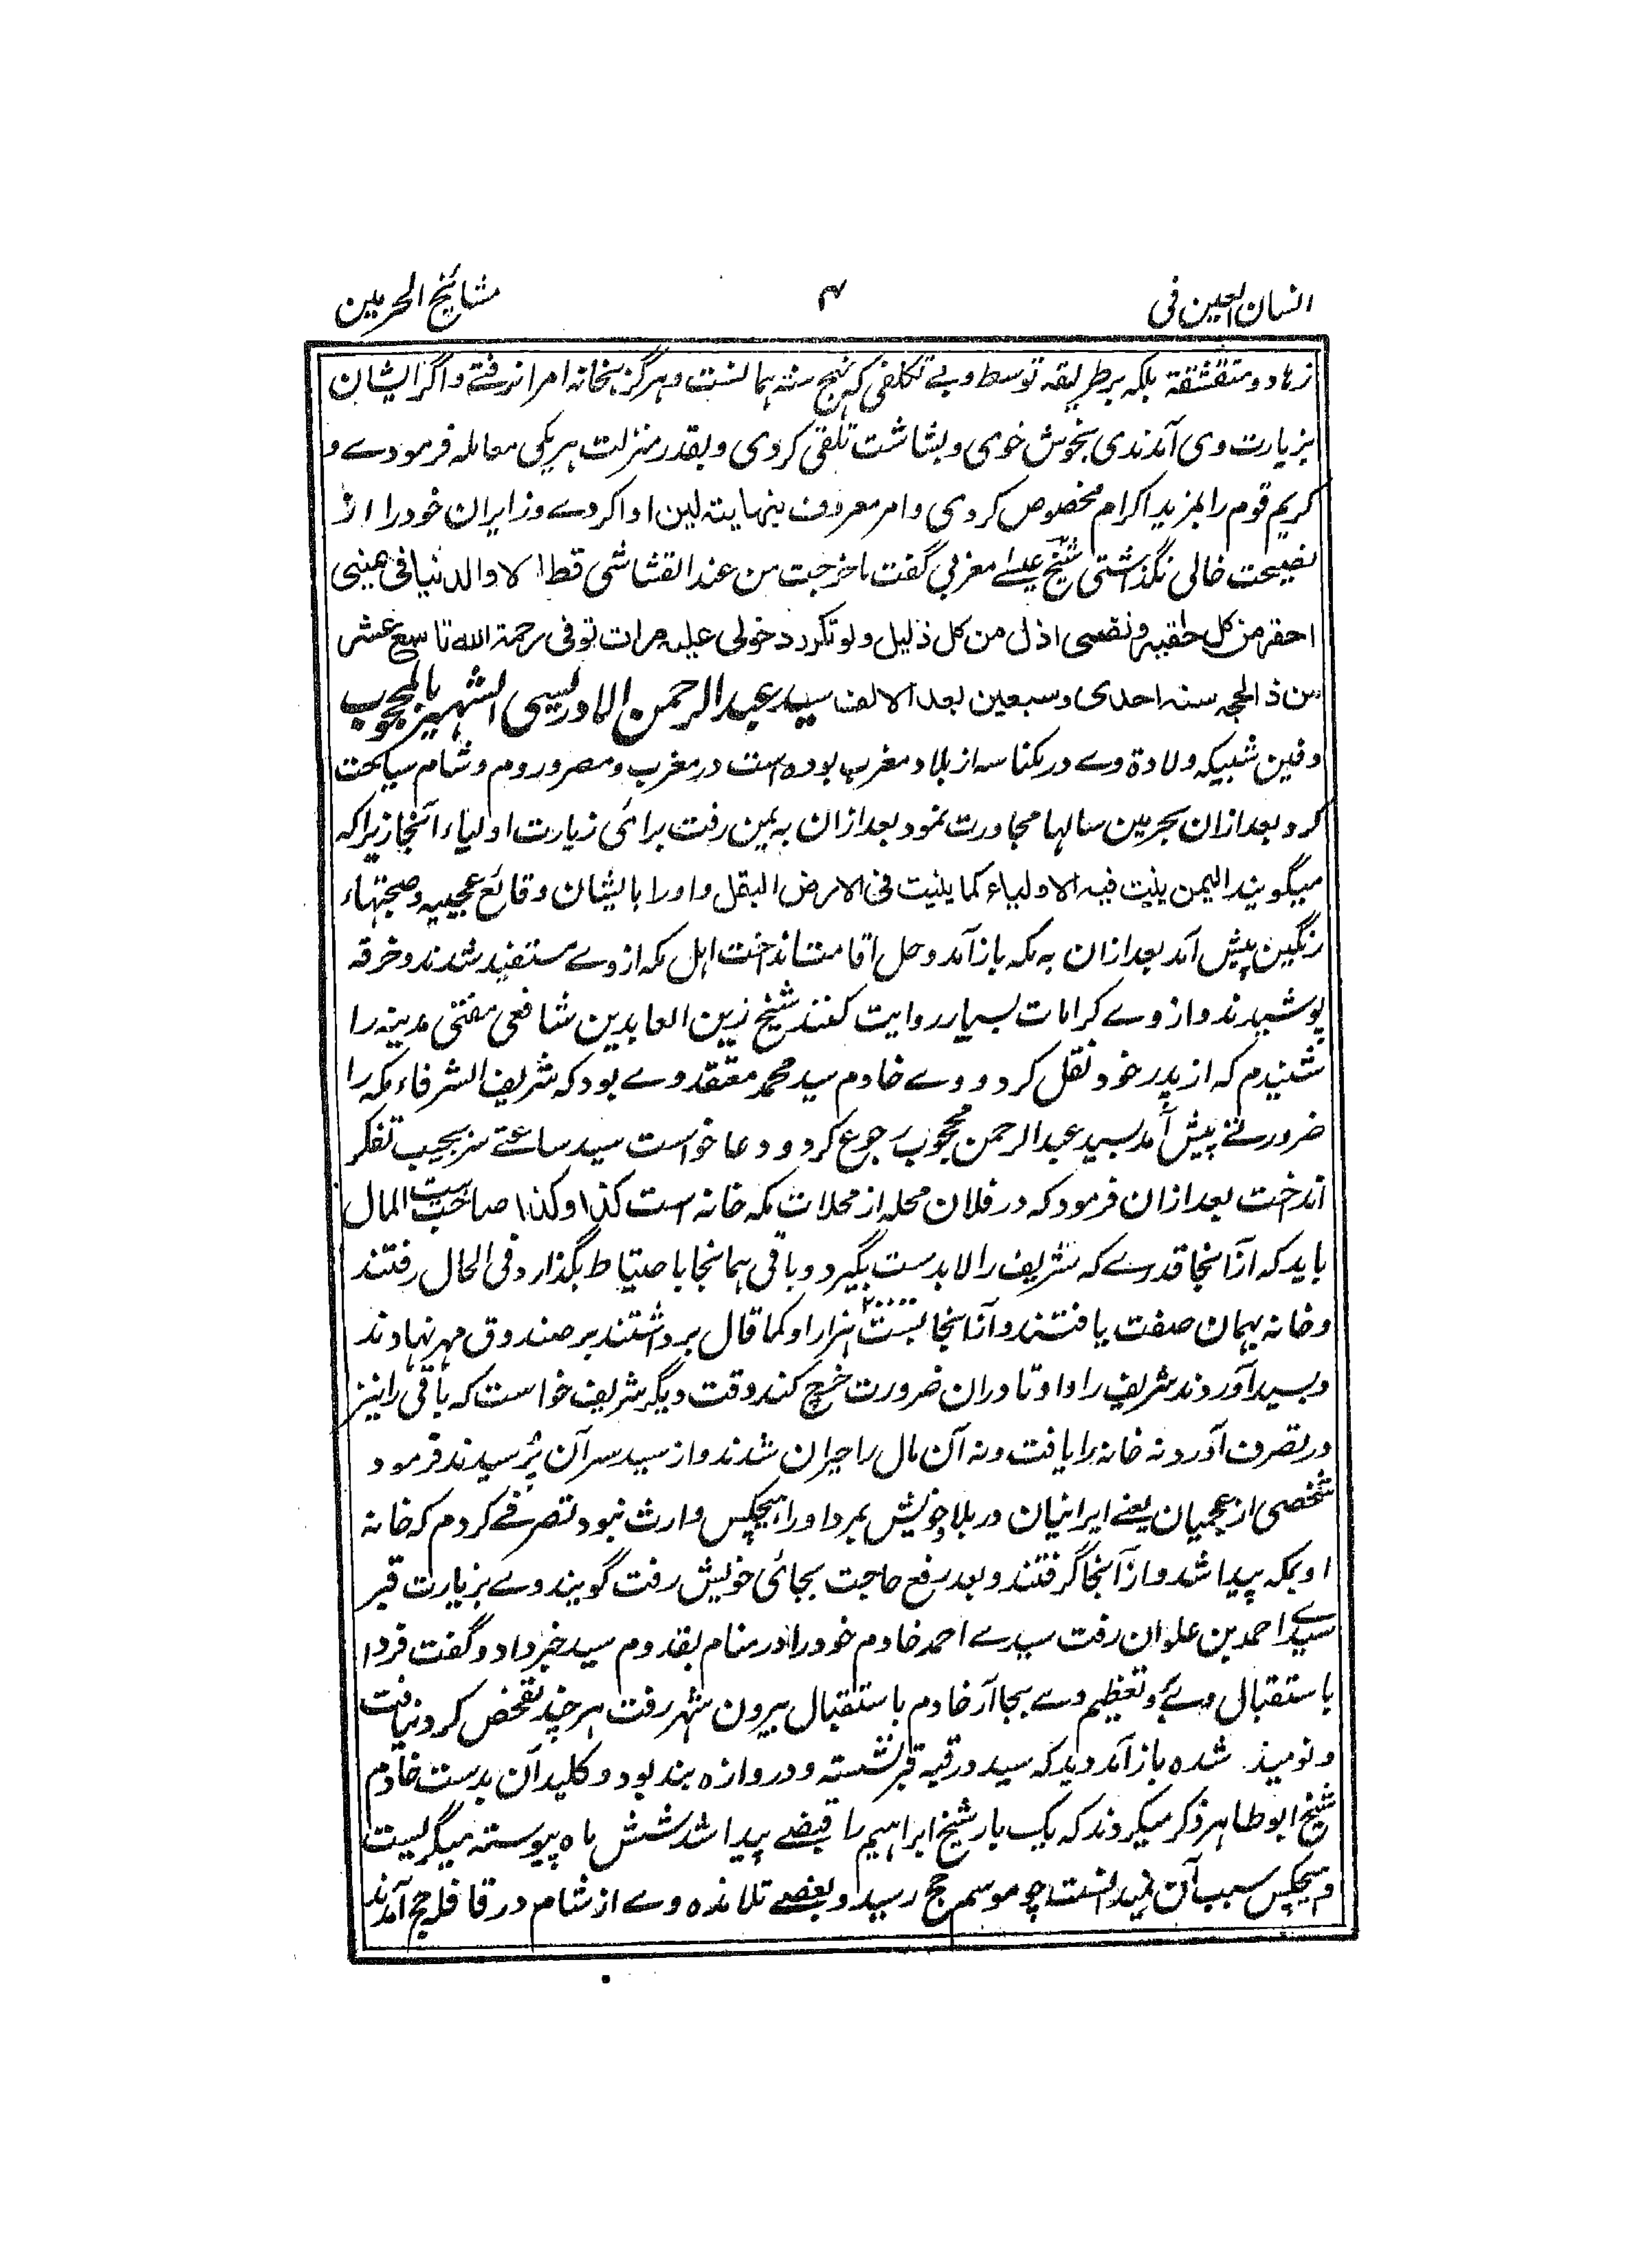 انسان العین فی
۴
مشائخ الحرمین
زهاد و متقشفة بلکه بر طریقه توسط و بے تکلفی که نهج سنته هما نست و هرگز بخانه امرا نرفتے و اگر ایشان
بزیارت وی آمدندی بخوش خوی و بشاشت تلقی کردی و بقدر منزلت هر یکی معامله فرمودے و
کریم قوم را بمزید اکرام مخصوص کردی و امر معروف بنهایته لین ادا کردے و زایران خود را از
نصیحت خالی نگذاشتی شیخ عیسٰے مغربی گفت ما خرجت من عند القشاشی قط الا والدنیا فی عینی
احقر من کل حقیر و نفسی اذل من کل ذلیل ولو تکرر دخولی علیه مرات توفی رحمة الله تاسع عشر
من ذالحجه سنه احدی و سبعین بعد الالف سید عبد الرحمن الادریسی الشهیر بالمحجوب
دفین شبیکه ولادة وے در مکناسه از بلاد مغرب بوده است در مغرب و مصر و روم و شام سیاحت
کرد بعد ازان بحرمین سالها مجاورت نمود بعد ازان به یمین رفت برائی زیارت اولیاء آنجا زیراکه
میگویند الیمن ینبت فیه الاولیاء کما ینبت فی الارض البقل و اورا با یشان وقائع عجیبه و صحبتهاء
رنگین پیش آمد بعد ازان به مکه باز آمد و حل اقامت انداخت اهل مکه از وے مستفید شدند و خرقه
پوشیدند و از وے کرامات بسیار روایت کنند شیخ زین العابدین شافعی مفتی مدینه را
شنیدم که از پدر خود نقل کرد و وے خادم سید محمد معتقد وے بود که شریف الشرفاء مکه را
ضرورتے پیش آمد بسید عبدالرحمن محجوب رجوع کرد و دعا خواست سید ساعتے سر بجیب تفکر
انداخت بعد ازان فرمود که در فلان محله از محلات مکه خانه است کذا و کذا صاحب بیت المال
باید که ازانجا قدرے که شریف را لابدست بگیرد و باقی همانجا با حتیاط بگذارد فی الحال رفتند
و خانه بهمان صفت یافتند و ازانجا بست ۲۰۰۰۰ هزار او کما قال برداشتند بر صندوق مهر نهادند
و بسید آوردند شریف را داد تا دران ضرورت خرچ کند وقت دیگر شریف خواست که باقی را نیز
در تصرف آرد و نه خانه را یافت و نه آن مال را حیران شدند و از سید سر آن پرسیدند فرمود
شخصی از عجمیان یعنے ایرانیان در بلاد خویش بمرد اورا هیچکس وارث نبود تصرفے کردم که خانه
او بمکه پیدا شد و ازآنجا گرفتند و بعد رفع حاجت بجائی خویش رفت گویند وے بزیارت قبر
سیدے احمد بن علوان رفت سیدے احمد خادم خود را در منام بقدوم سید خبر داد و گفت فردا
باستقبال وے رو و تعظیم وے بجا آر خادم باستقبال بیرون شهر رفت هر چند تفحص کرد نیافت
و نومید شده باز آمد دید که سید در قبه قبر نشسته و دروازه بند بود و کلید آن بدست خادم
شیخ ابو طاهر ذکر میکردند که یک بار شیخ ابراهیم را قبضے پیدا شد شش ماه پیوسته میگریست
و هیچکس سبب آن نمیدانست چو موسم حج رسید و بعضے تلامذه وے از شام در قافله حج آمدند